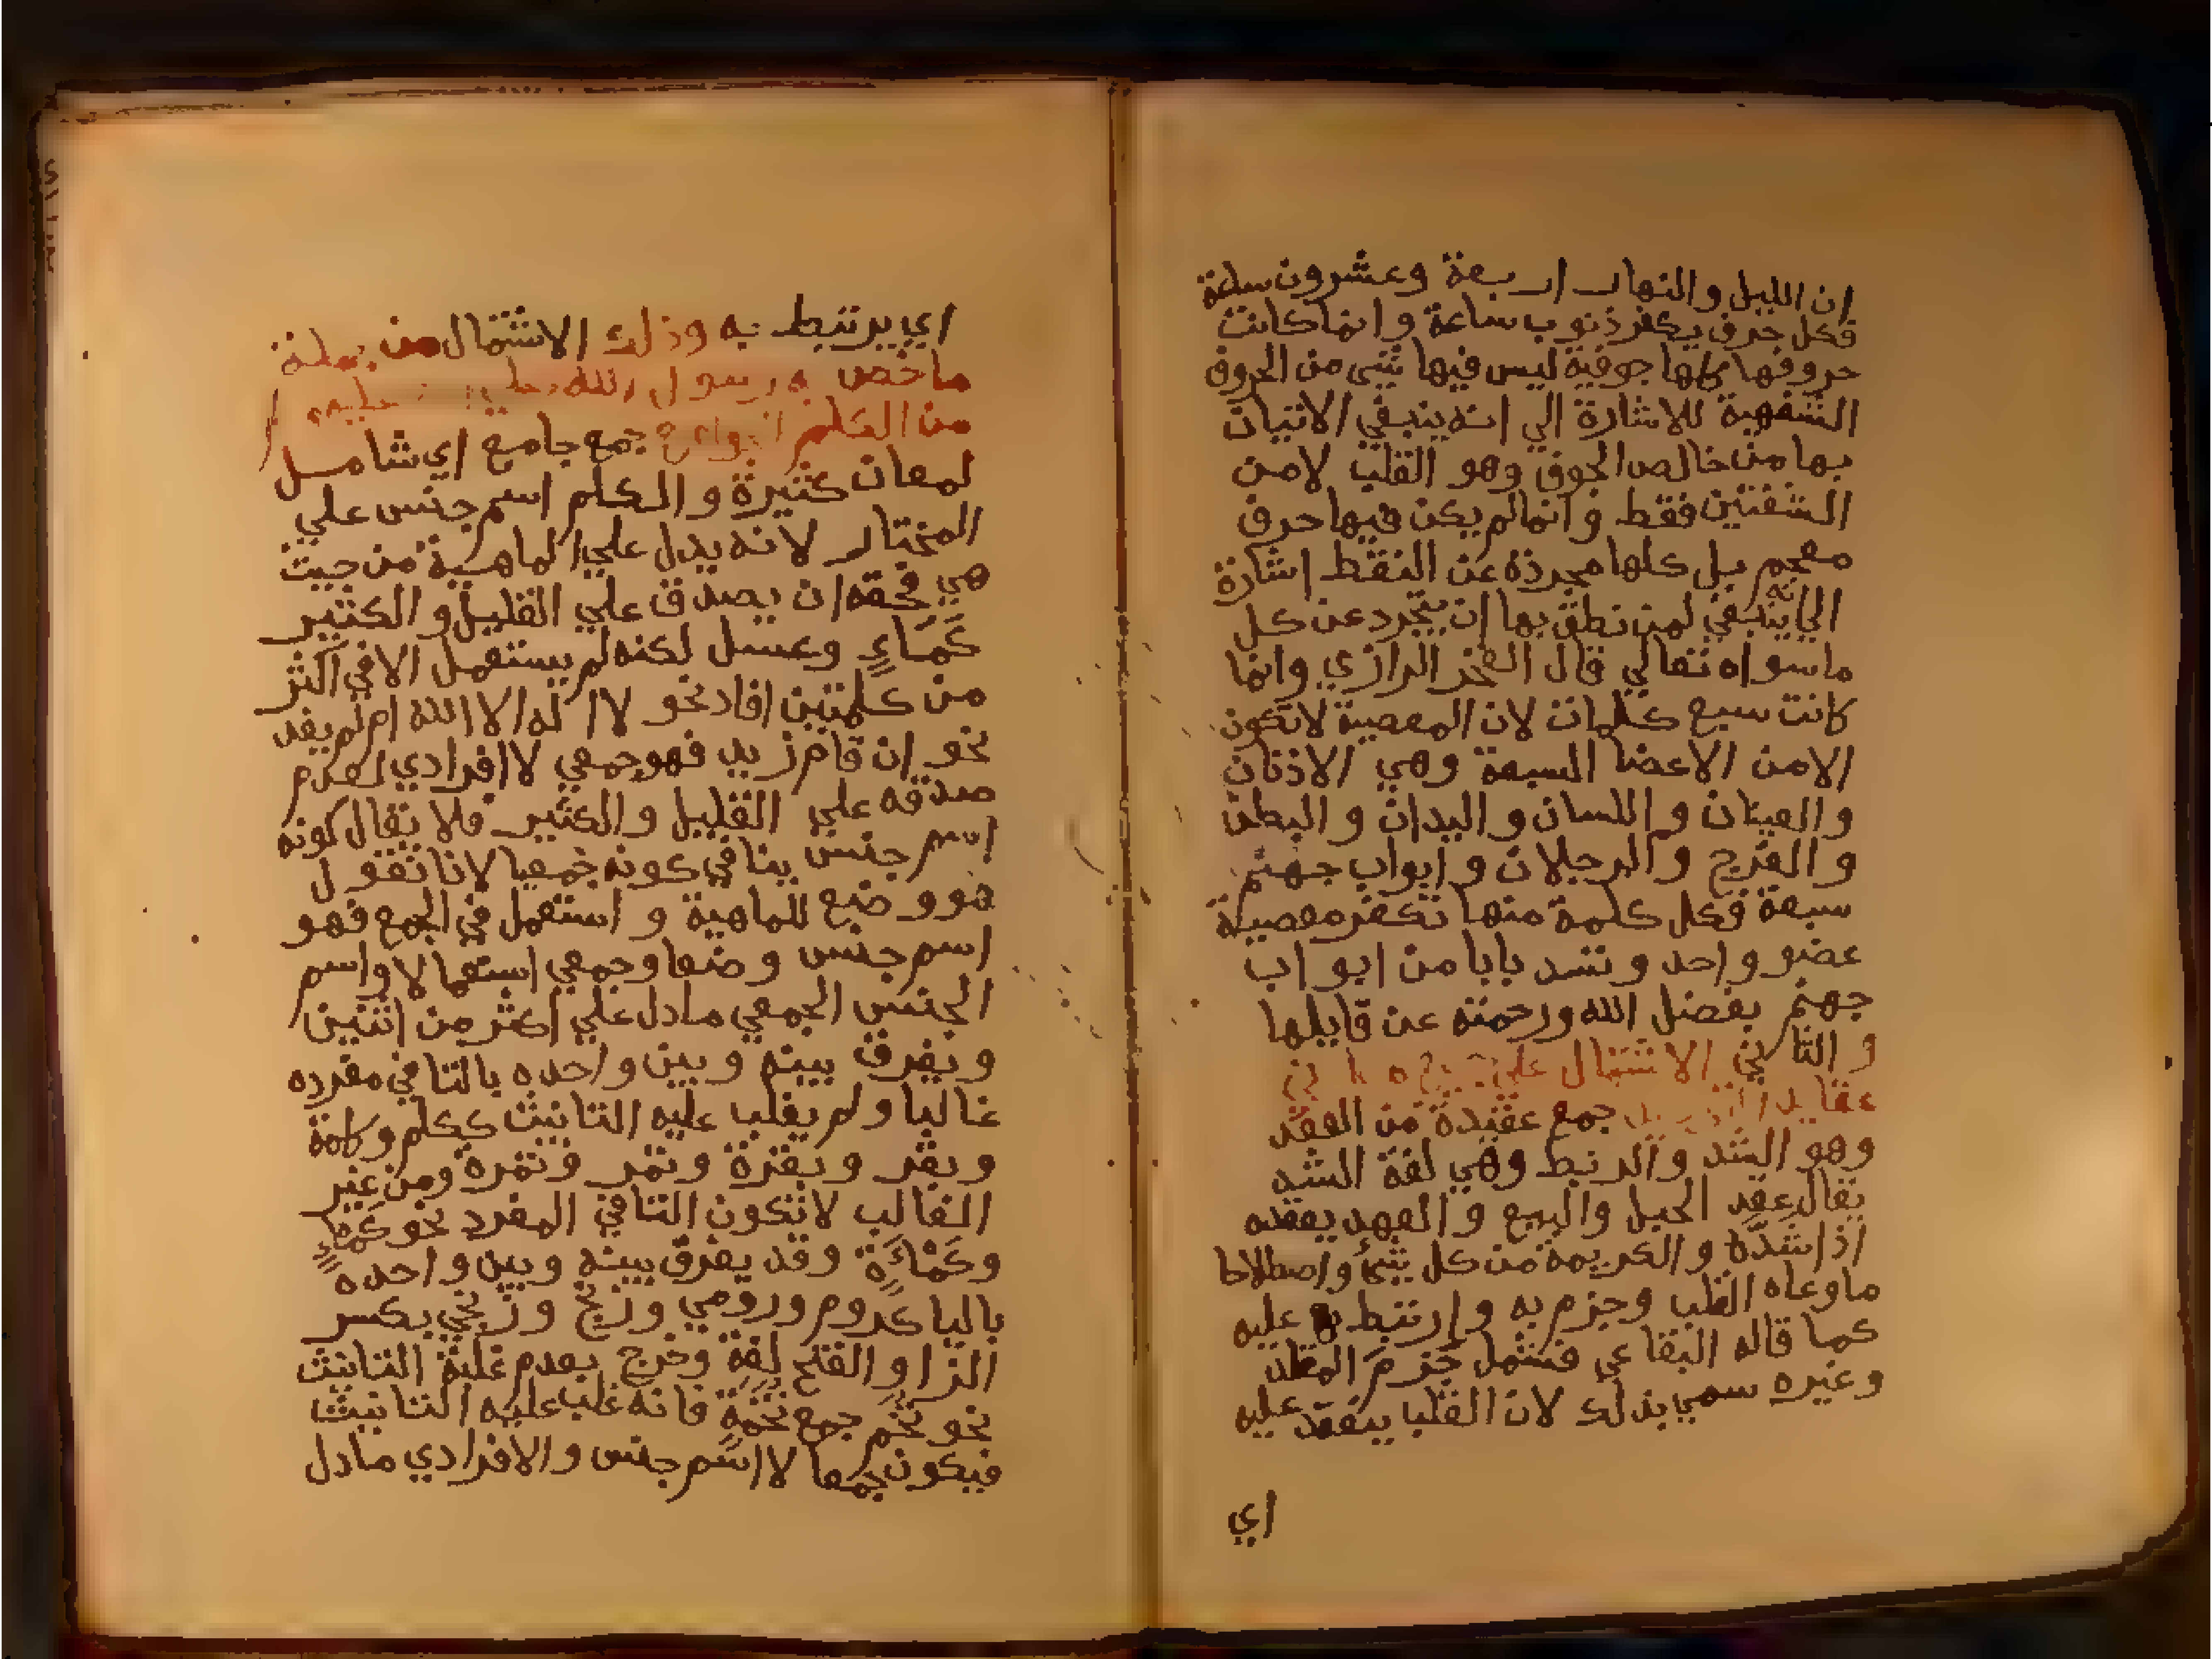 ان الليل والنهار اربعة وعشرون ساعة
فكل حرف يكفر ذنوب ساعة وانما كانت
حروفها كلها جوفية ليس فيها شي من الحروف
الشفهية للاشارة الي انه ينبغي الاتيان
بها من خالص الجوف وهو القلب لا من
الشفتين فقط وانما لم يكن فيها حرف
معجم بل كلها مجردة عن النقط اشارة
الي انه ينبغي لمن نطق بها ان يتجرد عن كل
ما سواه تعالي قال الفخر الرازي وانما
كانت سبع كلمات لان المعصية لا تكون
الا من الاعضا السبعة وهي الاذنان
والعينان واللسان واليدان والبطن
والفرج والرجلان وابواب جهنم
سبعة فكل كلمة منها تكفر معصية
عضو واحد وتسد بابا من ابواب
جهنم بفضل الله ورحمته عن قايلها
والثاني الاشتمال علي
عقايد جمع عقيدة من العقد
وهو الشد والربط وهي لغة الشد
يقال عقد الحبل والبيع والعهد يعقده
اذا شَدَّه والكريمة من كل شئ واصطلاحا
ما وعاه القلب وجزم به وارتبط عليه
كما قاله البقاعي فشمل جزم المقلد
وغيره سمي بذلك لان القلب ينعقد عليه
اي
اي يرتبط به وذلك الاشتمال من جملة
ما خص به رسول الله صلي الله عليه
من الكلم الجوامع جمع جامع اي شامل
لمعان كثيرة والكلم اسم جنس علي
المختار لانه يدل علي الماهية من حيث
هي فحقه ان يصدق علي القليل والكثير
كَمَاءٍ وعسل لكنه لم يستعمل الا في اكثر
من كلمتين افاد نحو لا اله الا الله ام لم يفد
نحو ان قام زيد فهو جمعي لا افرادي لعدم
صدقه علي القليل والكثير فلا يقال كونه
اسم جنس ينافي كونه جمعيا لانا نقول
هو وضع للماهية واستعمل في الجمع فهو
اسم جنس وضعا وجمعي استعمالا واسم
الجنس الجمعي ما دل علي اكثر من اثنين
ويفرق بينه وبين واحده بالتا في مفرده
غالبا ولم يغلب عليه التانيث ككلم وكلمة
وبقر وبقرة وتمر وتمرة ومن غير
الغالب لا تكون التا في المفرد نحو كَمْاءٍ
وكَمْاءَةٍ وقد يفرق بينه وبين واحده
باليا كروم ورومي وزنج وزنجي بكسر
الزا والفتح لِغَةٍ وخرج بعدم غلبة التانيث
نحو تُخَم جمع تُخَمَةٍ فانه غلب عليه التانيث
فيكون جمعا لا اسم جنس والافرادي ما دل